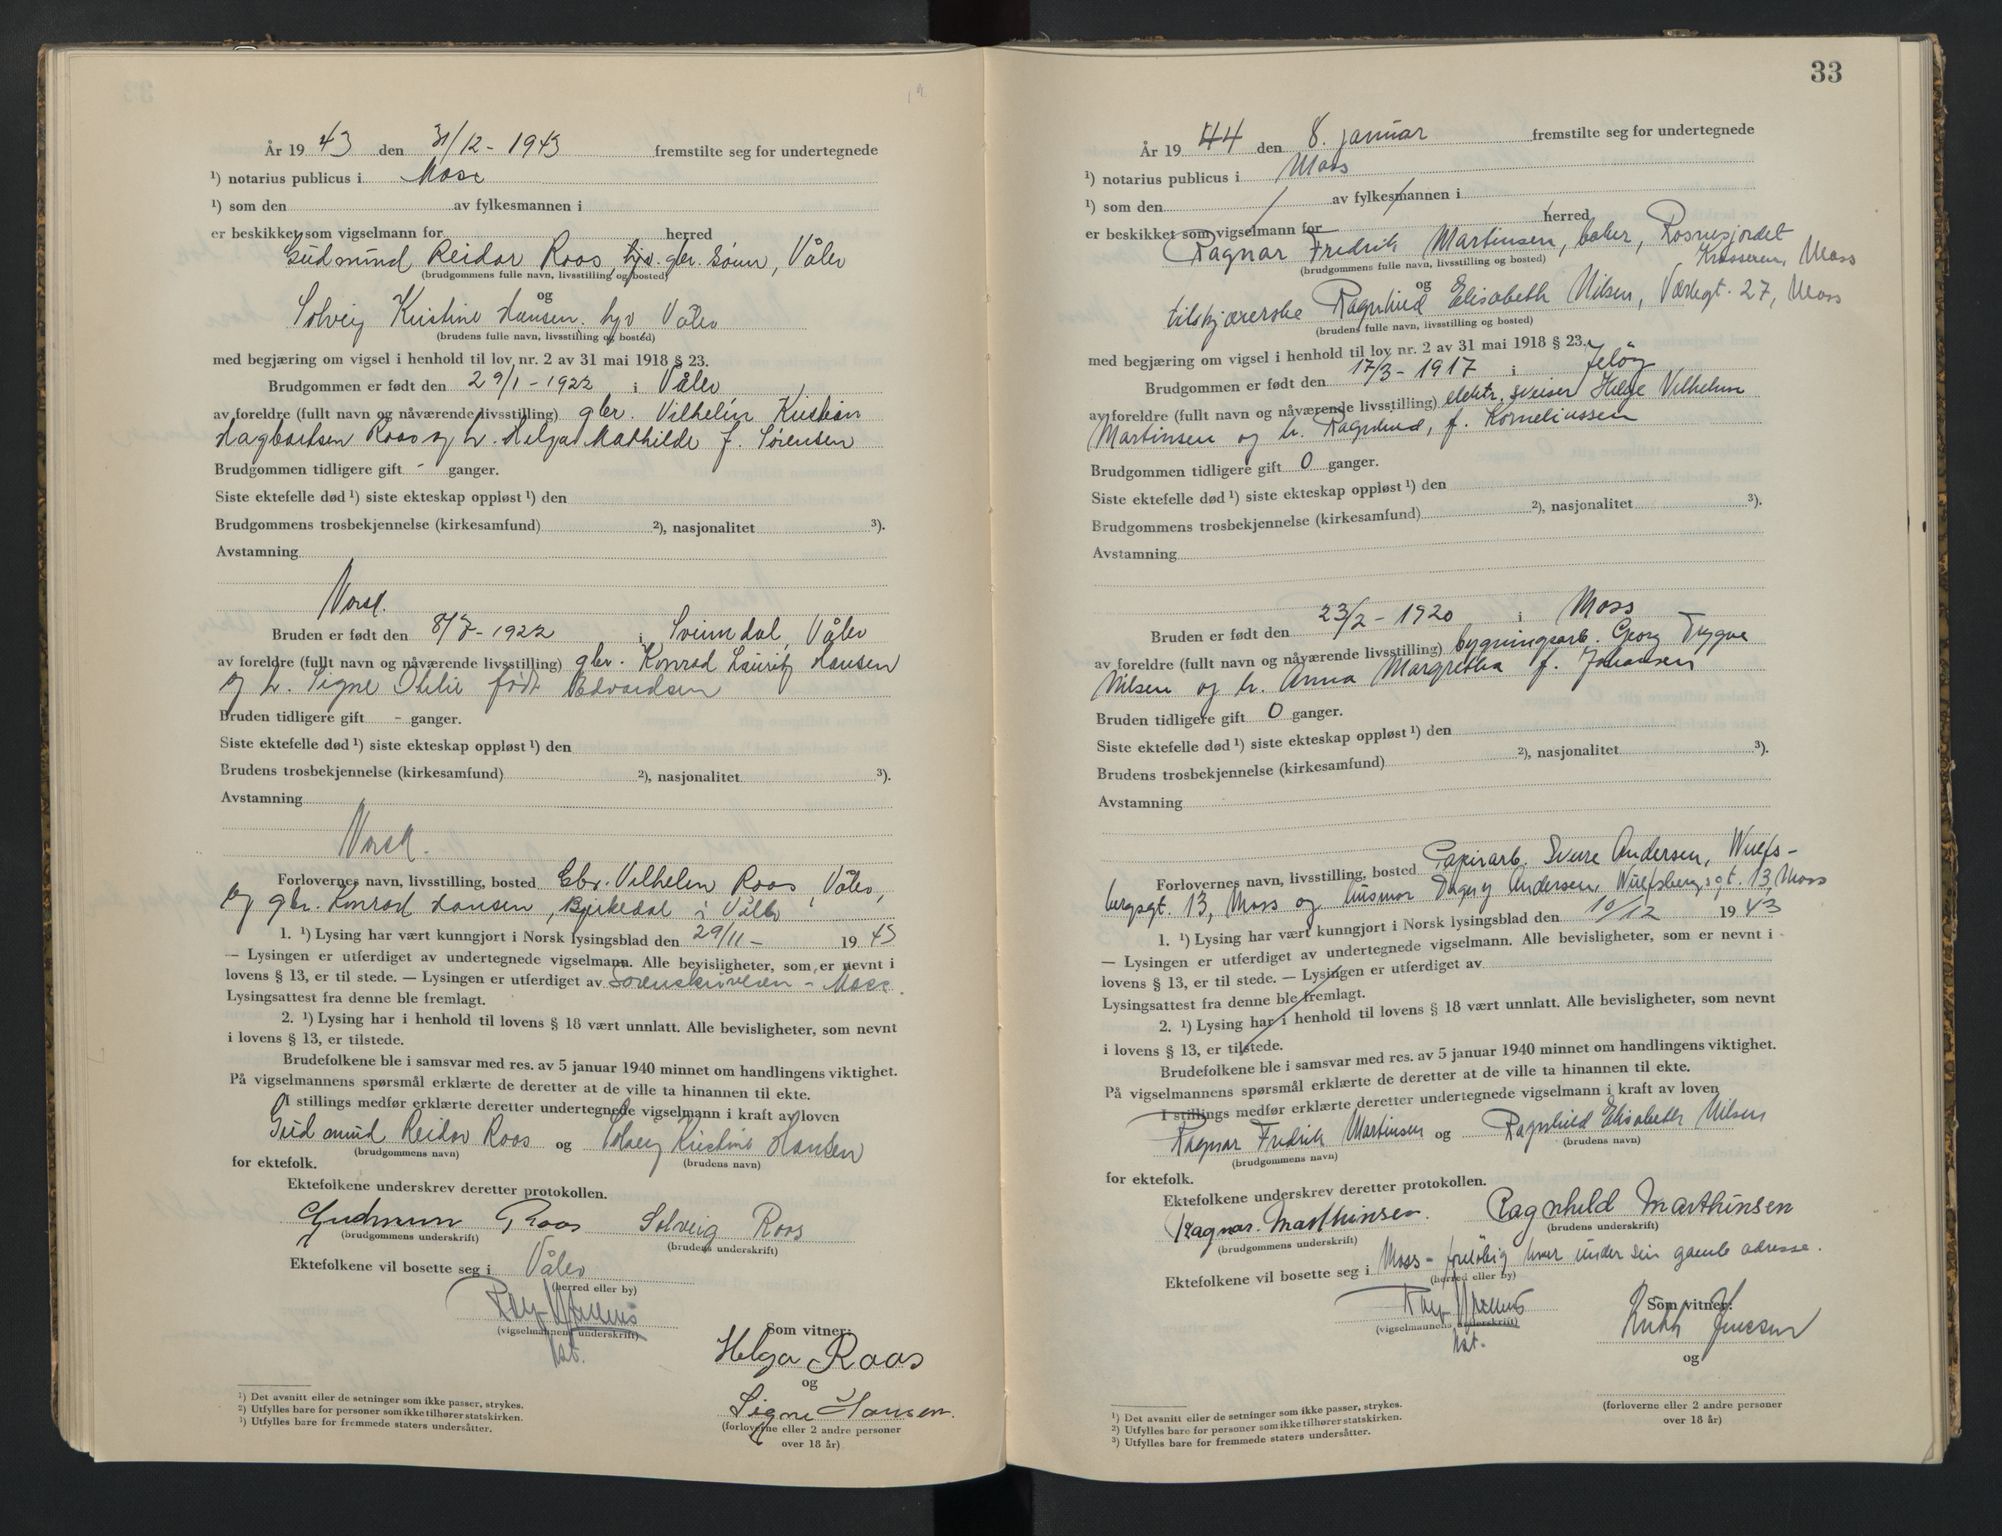 År 19 43 den 31/12 - 1943 fremstilte seg for undertegnede
¹) notarius publicus i Moss
¹) som den av fylkesmannen i
er beskikket som vigselmann for herred
Gudmund Reidar Roos, gbr. sønn, Våler
(brudgommens fulle navn, livsstilling og bosted)
og
Solveig Kristine Hansen, hjv Våler
(brudens fulle navn, livsstilling og bosted)
med begjæring om vigsel i henhold til lov nr. 2 av 31 mai 1918 § 23.
Brudgommen er født den 29/1 - 1922 i Våler
av foreldre (fullt navn og nåværende livsstilling) gbr. Vilhelm Kristian
Hagbartsen Roos og h. Helga Mathilde f. Sørensen
Brudgommen tidligere gift - ganger.
Siste ektefelle død ¹) siste ekteskap oppløst ¹) den
Brudgommens trosbekjennelse (kirkesamfund) ²), nasjonalitet ³).
Avstamning
Norsk.
Bruden er født den 8/7 - 1922 i Svinndal, Våler
av foreldre (fullt navn og nåværende livsstilling) gbr. Konrad Lauritz Hansen
og h. Signe Othilie født Edvardsen
Bruden tidligere gift - ganger.
Siste ektefelle død ¹) siste ekteskap oppløst ¹) den
Brudens trosbekjennelse (kirkesamfund) ²), nasjonalitet ³).
Avstamning
Norsk.
Forlovernes navn, livsstilling, bosted Gbr. Vilhelm Roos, Våler,
og gbr. Konrad Hansen, Bjerkedal i Våler
1. ¹) Lysing har vært kunngjort i Norsk lysingsblad den 29/11 - 19 43
— Lysingen er utferdiget av undertegnede vigselmann. Alle bevisligheter, som er nevnt i
lovens § 13, er til stede. — Lysingen er utferdiget av Sorenskriveren - Moss.
Lysingsattest fra denne ble fremlagt.
2. ¹) Lysing har i henhold til lovens § 18 vært unnlatt. Alle bevisligheter, som nevnt
i lovens § 13, er tilstede.
Brudefolkene ble i samsvar med res. av 5 januar 1940 minnet om handlingens viktighet.
På vigselmannens spørsmål erklærte de deretter at de ville ta hinannen til ekte.
I stillings medfør erklærte deretter undertegnede vigselmann i kraft av loven
Gudmund Reidar Roos og Solveig Kristine Hansen
(brudgommens navn) (brudens navn)
for ektefolk.
Ektefolkene underskrev deretter protokollen.
Gudmun Roos Solveig Roos
(brudgommens underskrift) (brudens underskrift)
Ektefolkene vil bosette seg i Våler
(herred eller by)
(vigselmannens underskrift)
Som vitner:
Helga Roos
og
Signe Hansen.
(forloverne eller 2 andre personer
over 18 år)
¹) Det avsnitt eller de setninger som ikke passer, strykes.
²) Utfylles bare for personer som ikke tilhører statskirken.
³) Utfylles bare for fremmede staters undersåtter.
33
År 19 44 den 8. januar fremstilte seg for undertegnede
¹) notarius publicus i Moss
¹) som den av fylkesmannen i
er beskikket som vigselmann for herred
Ragnar Fredrik Martinsen, baker, Rosnesjordet
Krosseren, Moss
(brudgommens fulle navn, livsstilling og bosted)
og
tilskjærerske Ragnhild Elisabeth Nilsen, Værlegt. 27, Moss
(brudens fulle navn, livsstilling og bosted)
med begjæring om vigsel i henhold til lov nr. 2 av 31 mai 1918 § 23.
Brudgommen er født den 17/3 - 1917 i Jeløy
av foreldre (fullt navn og nåværende livsstilling) elektr. sveiser Helge Vilhelm
Martinsen og h. Ragnhild, f. Korneliussen
Brudgommen tidligere gift 0 ganger.
Siste ektefelle død ¹) siste ekteskap oppløst ¹) den
Brudgommens trosbekjennelse (kirkesamfund) ²), nasjonalitet ³).
Avstamning
Bruden er født den 23/2 - 1920 i Moss
av foreldre (fullt navn og nåværende livsstilling) bygningsarb. Georg Trygve
Nilsen og h. Anna Margretha f. Johansen
Bruden tidligere gift 0 ganger.
Siste ektefelle død ¹) siste ekteskap oppløst ¹) den
Brudens trosbekjennelse (kirkesamfund) ²), nasjonalitet ³).
Avstamning
Forlovernes navn, livsstilling, bosted Papirarb. Sverre Andersen, Wulfs-
bergsgt. 13, Moss og husmor Dagny Andersen, Wulfsbergsgt. 13, Moss
1. ¹) Lysing har vært kunngjort i Norsk lysingsblad den 10/12 19 43
— Lysingen er utferdiget av undertegnede vigselmann. Alle bevisligheter, som er nevnt i
lovens § 13, er til stede. — Lysingen er utferdiget av
Lysingsattest fra denne ble fremlagt.
2. ¹) Lysing har i henhold til lovens § 18 vært unnlatt. Alle bevisligheter, som nevnt
i lovens § 13, er tilstede.
Brudefolkene ble i samsvar med res. av 5 januar 1940 minnet om handlingens viktighet.
På vigselmannens spørsmål erklærte de deretter at de ville ta hinannen til ekte.
I stillings medfør erklærte deretter undertegnede vigselmann i kraft av loven
Ragnar Fredrik Martinsen og Ragnhild Elisabeth Nilsen
(brudgommens navn) (brudens navn)
for ektefolk.
Ektefolkene underskrev deretter protokollen.
Ragnar. Marthinsen. Ragnhild Marthinsen
(brudgommens underskrift) (brudens underskrift)
Ektefolkene vil bosette seg i Moss - foreløbig hver under sin gamle adresse.
(herred eller by)
(vigselmannens underskrift)
Som vitner:
og
(forloverne eller 2 andre personer
over 18 år)
¹) Det avsnitt eller de setninger som ikke passer, strykes.
²) Utfylles bare for personer som ikke tilhører statskirken.
³) Utfylles bare for fremmede staters undersåtter.